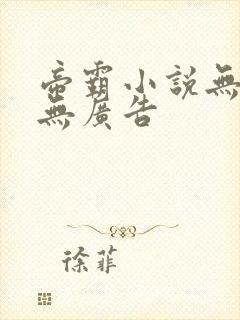 帝霸小說無
無廣告
徐菲